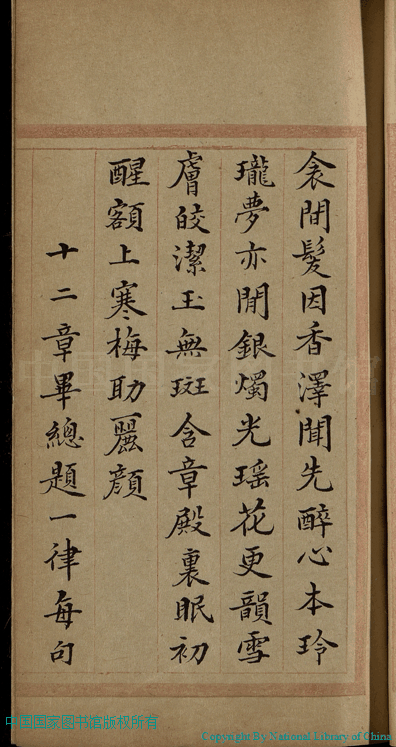 衾間髮因香澤聞先醉心本玲
瓏夢亦閒銀燭光瑶花更韻雪
膚皎潔玉無斑含章殿裏眠初
醒額上寒梅助麗顔
十二章畢總題一律每句
中国国家图书馆版权所有
Copyright By National Library of China